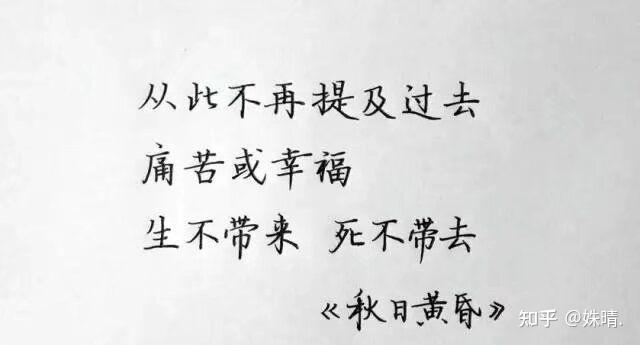 从此不再提及过去
痛苦或幸福
生不带来 死不带去
《秋日黄昏》
知乎 @姝晴.